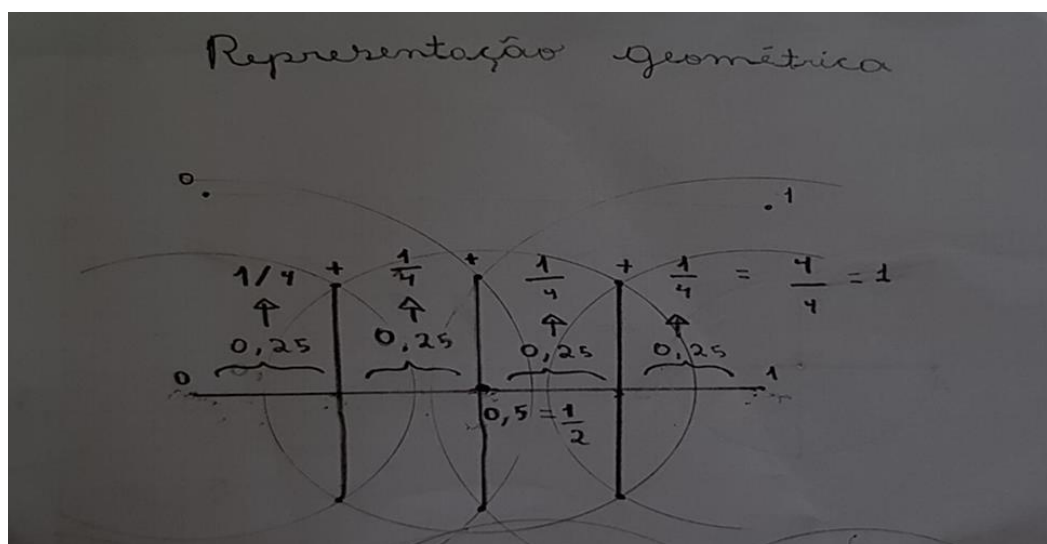 Representação geométrica
0 1
1/4 + 1/4 + 1/4 + 1/4 = 4/4 = 1
0,25 0,25 0,25 0,25
0 1
0,5 = 1/2